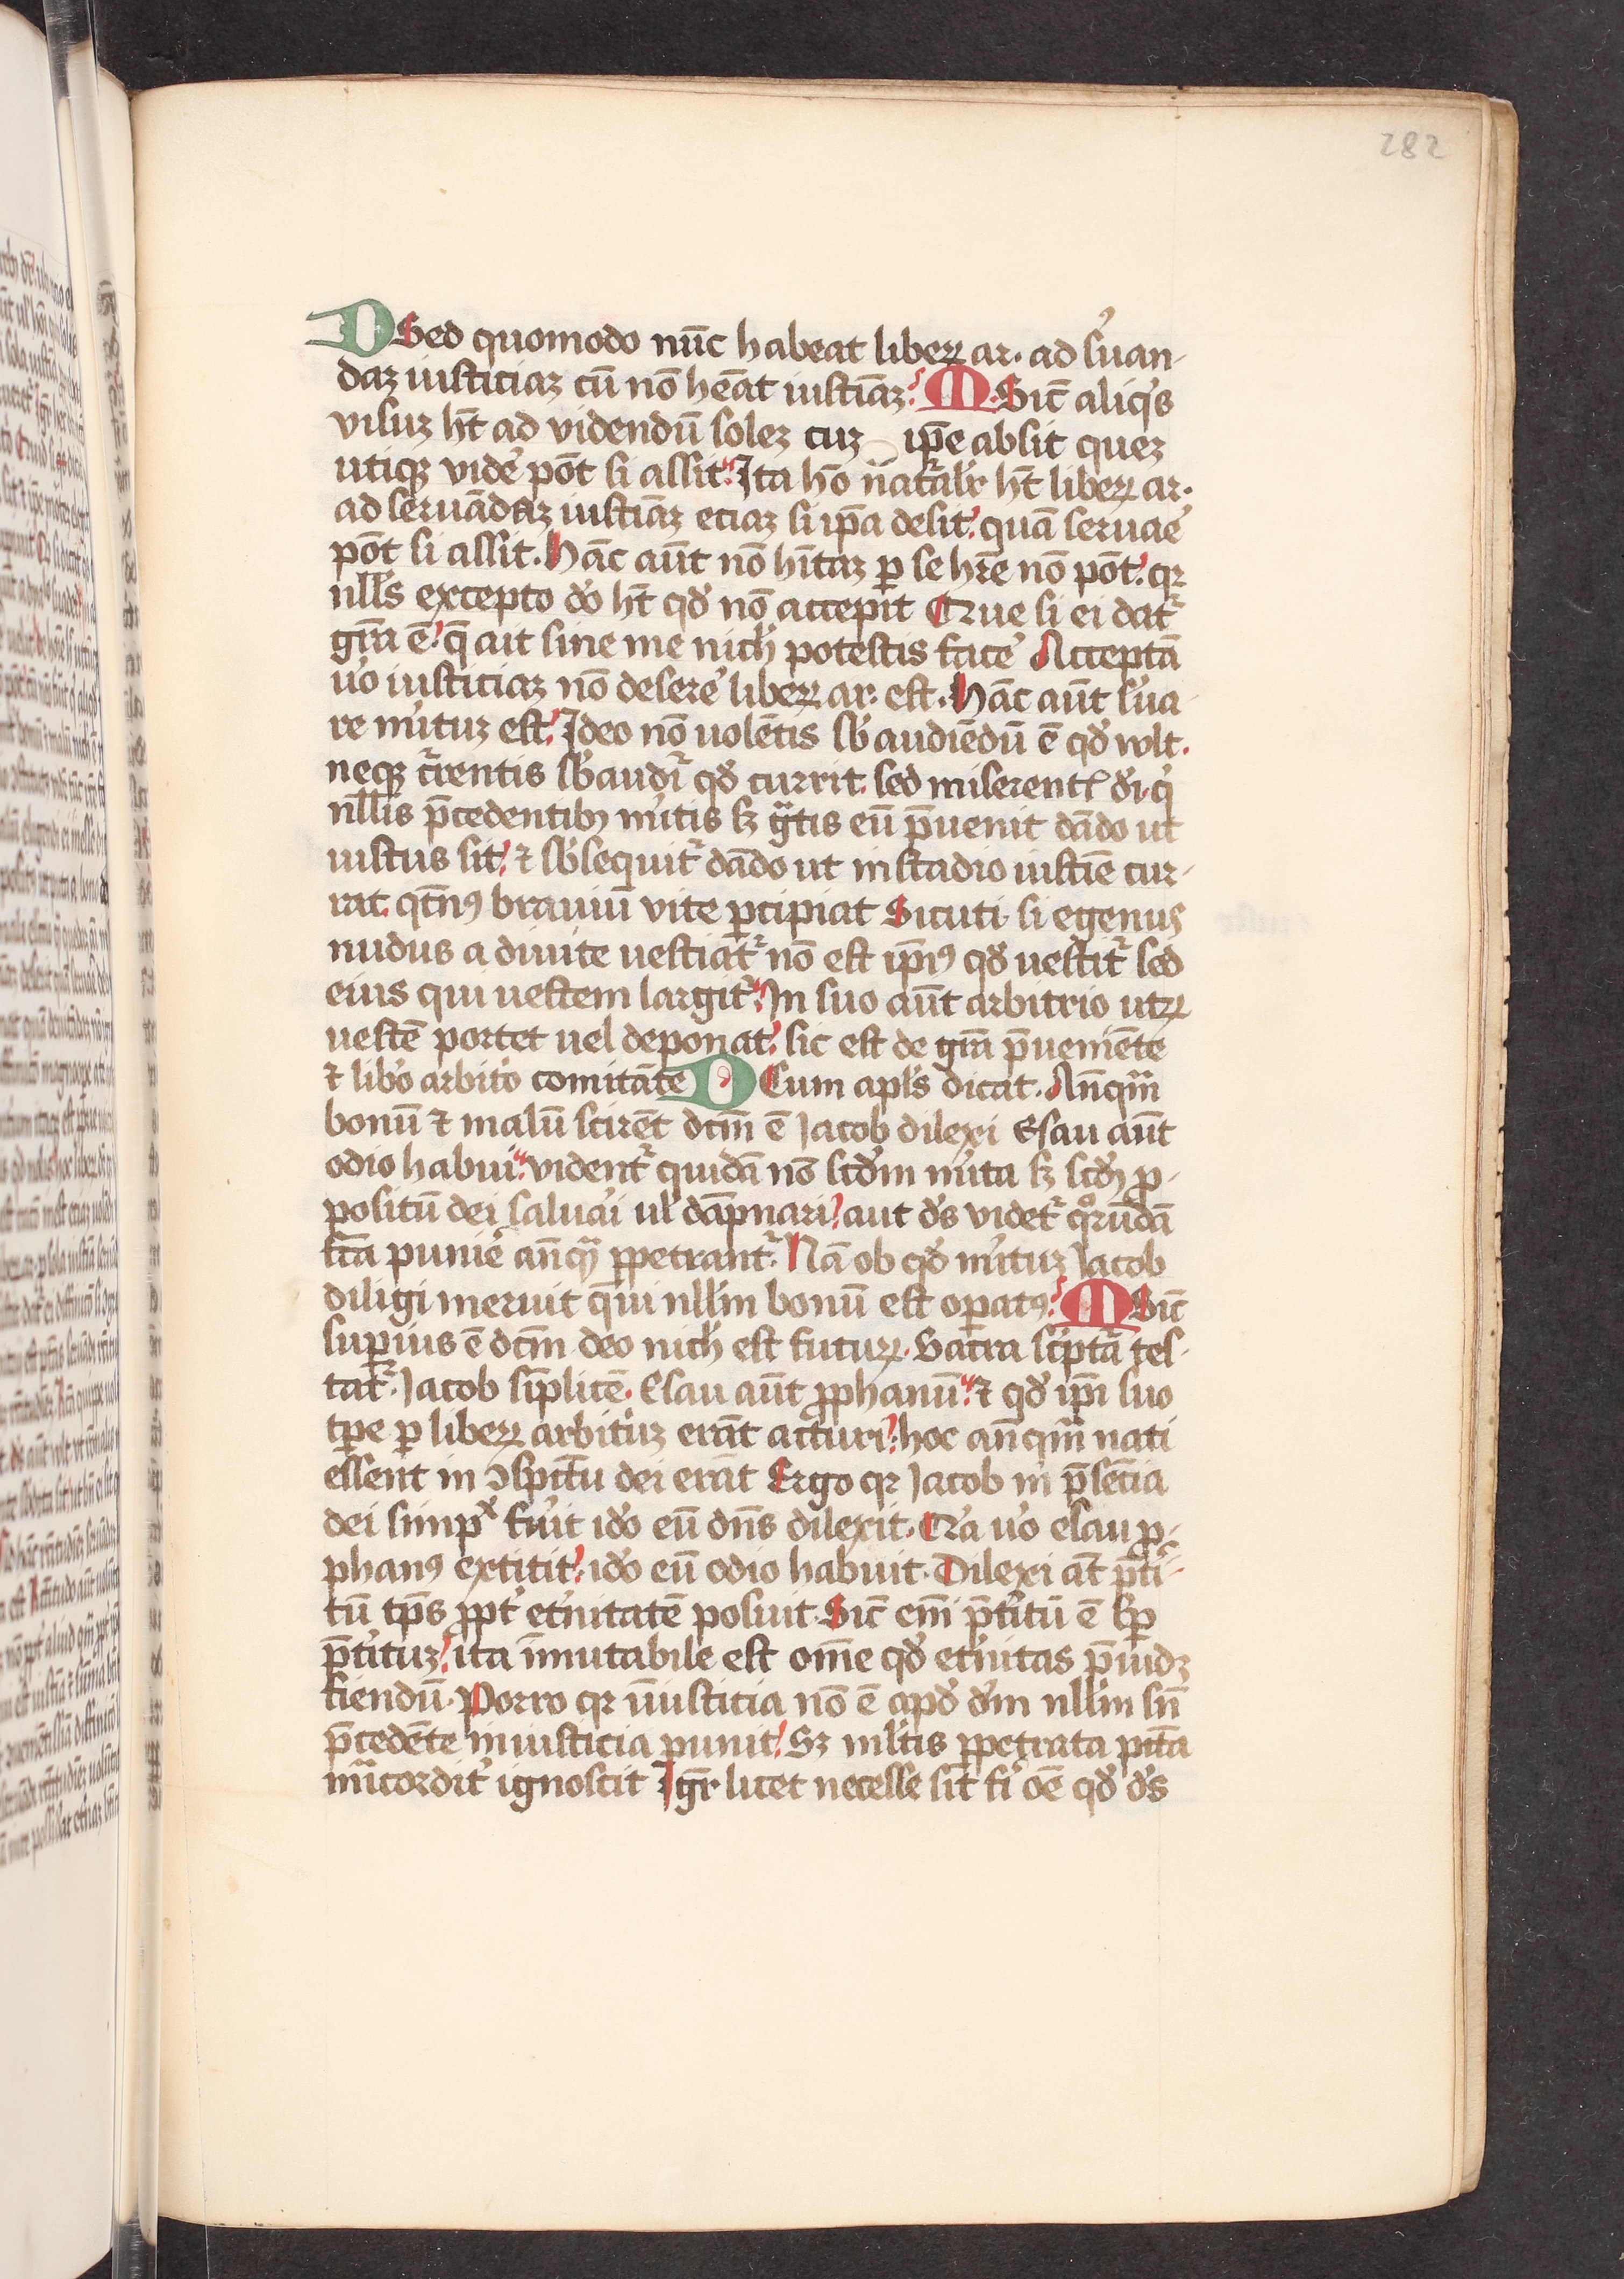 282
D Sed quomodo nūc habeat liberꝝ ar. ad s̾uan-
daꝫ iusticiaꝫ cū nō hēat iustiāꝫ? M. Sic̄ aliqͥs
visuꝫ ht̄ ad videndū soleꝫ cuꝫ ip̄e absit queꝫ
utiqꝫ vide̾ pōt si assit. Ita hō nat᷑al̾r ht̄ liberꝝ ar.
ad seruādaꝫ iustiāꝫ eciaꝫ si ip̄a desit. quā seruae̾
pōt si assit. Hāc aūt nō hītaꝫ ꝑ se hr̄e nō pōt. qꝛ
nll̾s excepto d̾o ht̄ qd̾ nō accepit Que si ei dat᷑
gr̄a ē. q̄ ait sine me nich̾ potestis face̾ Acceptā
u̾o iusticiaꝫ nō desere̾ liberꝝ ar. est. Hāc aūt s̾ua
re m̾ituꝫ est. Ideo nō uolētis sb̾audiēdū ē qd̾ wlt.
neqꝫ c᷑rentis sb̾audi᷑ qd̾ currit. sed miserent᷑ d̾i. qͥ
nll̾is p̄cedentibꝫ m̾itis sꝫ gᷓtis eū p̄uenit dādo ut
iustus sit. ⁊ sb̾sequit᷑ dādo ut in stadio iustiē cur-
rat. qt̄nꝰ brauiū vite ꝑcipiat Sicuti si egenus
nudus a diuite uestiat᷑ nō est ip̄iꝰ qd̾ uestit᷑ sed
eius qui uestem largit᷑. In suo aūt arbitrio utꝝ
uestē portet uel deponat. sic est de gr̄a p̄ueniēte
⁊ lib̾o arbit̾o comitāte D Cum apl̾s dicat. An̄qᷓm
bonū ⁊ malū scirēt dc̄m ē Jacob dilexi Esau aūt
odio habui. vident᷑ quidā nō scd̾m m̾ita sꝫ scd̾ꝫ ꝓ-
positū dei salua̾i ul̾ dāpnari. aut d̾s videt᷑ qͦrūdā
fc̄a punie̾ an̄qᷓ ꝑpetrant᷑. Nā ob qd̾ m̾ituꝫ Jacob
diligi meruit q̄ui nll̾m bonū est opatꝰ. M Sic̄
supius ē dc̄m deo nich̾ est futurꝝ. Sacra sc̾ptā tes-
tat᷑. Jacob sīplicē. Esau aūt ꝓphanū. ⁊ qd̾ ip̄i suo
tp̄e ꝑ liberꝝ arbit̾uꝫ erāt acturi. hoc an̄qᷓm nati
essent in ↄspc̄tu dei erāt Ergo qꝛ Jacob in p̄sētia
dei simpˣ fuit id̾o eū dn̄s dilexit. Q̾a u̾o esau ꝓ-
phanꝰ extitit. id̾o eū odio habuit. Dilexi āt p̄t̾i-
tū tp̄s ꝓpt̾ et̾nitatē posuit. Sic̄ em̄ p̄t̾itū ē sꝑ
p̄t̾ituꝫ. ita īmutabile est om̄e qd̾ et̾nitas p̄uidꝫ
fiendū. Porro qꝛ īiusticia nō ē apd̾ d̾m nll̾m sn̄
p̄cedēte iniusticia punit. Sꝫ ml̾tis ꝑpetrata pc̄ta
mīcordit̾ ignoscit Igr̄ licet necesse sit fi̾ oē qd̾ d̾s